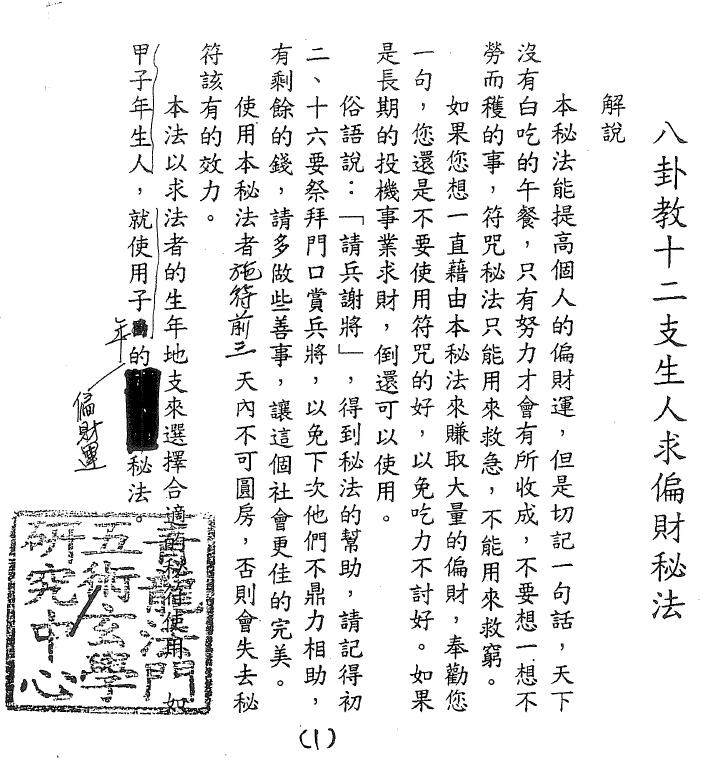 八卦教十二支生人求偏財秘法
解說
本秘法能提高個人的偏財運，但是切記一句話，天下
沒有白吃的午餐，只有努力才會有所收成，不要想一想不
勞而穫的事，符咒秘法只能用來救急，不能用來救窮。
如果您想一直藉由本秘法來賺取大量的偏財，奉勸您
一句，您還是不要使用符咒的好，以免吃力不討好。如果
是長期的投機事業求財，倒還可以使用。
俗語說：「請兵謝將」，得到秘法的幫助，請記得初
二、十六要祭拜門口賞兵將，以免下次他們不鼎力相助，
有剩餘的錢，請多做些善事，讓這個社會更佳的完美。
使用本秘法者施符前三天內不可圓房，否則會失去秘
符該有的效力。
本法以求法者的生年地支來選擇合適的秘符使用，如
甲子年生人，就使用子年的偏財運秘法。
青龍法門
五術玄學
研究中心
(1)